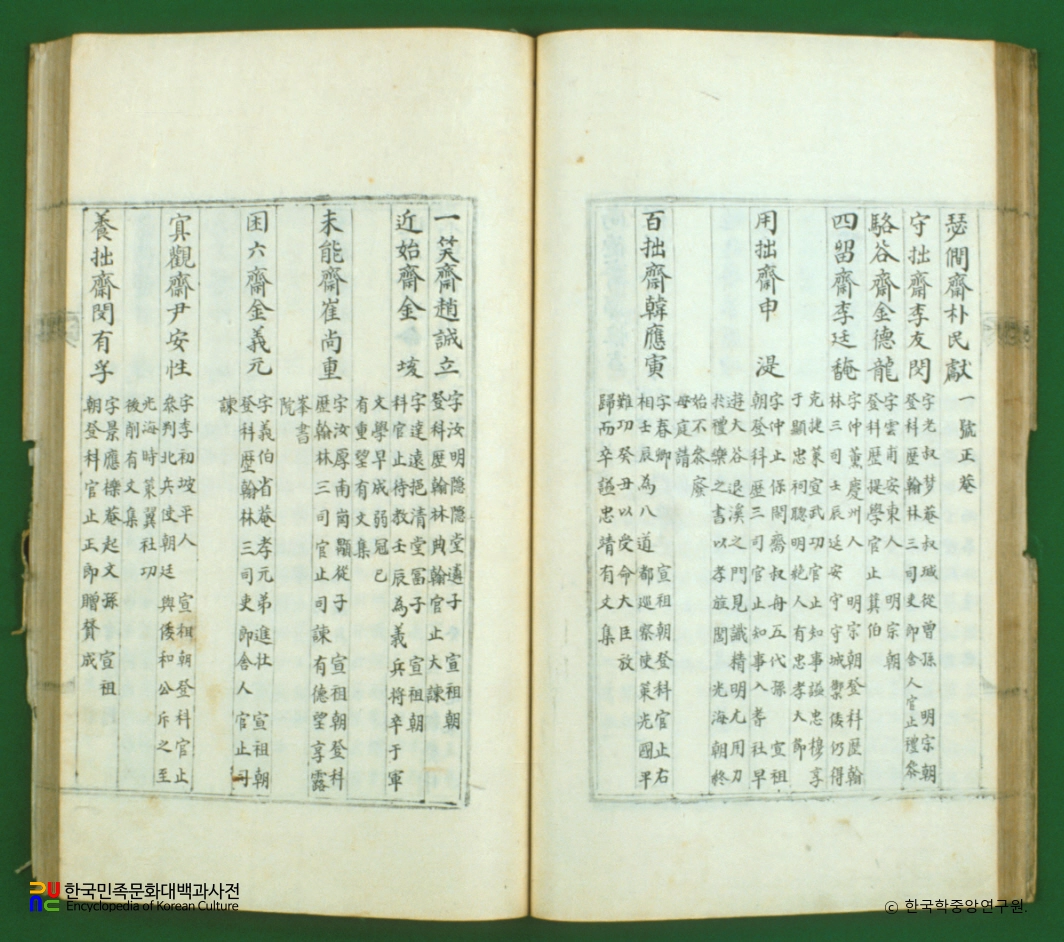 瑟僩齋朴民獻 一號正菴
字老叔夢菴叔瑊從曾孫 明宗朝
登科歷翰林三司吏郎舍人官止禮參
守拙齋李友閔
字雲甫安東人 明宗朝
登科歷提學官止箕伯
駱谷齋金德龍
字仲薰慶州人 明宗朝登科歷翰
林三司壬辰延安守守城禦倭仍得
四留齋李廷馣
克捷策宣武功官止知事謚忠穆享
于顯忠祠聰明絶人有忠孝大節
用拙齋申 湜
字仲止保閑齋叔舟五代孫 宣祖
朝登科歷三司官止知事入耆社早
遊大谷退溪之門見識精明尤用力
於禮樂之書以孝旌閭 光海朝終
始不參
母庭請
百拙齋韓應寅
字春卿 宣祖朝登科官止右
相壬辰為八道都巡察使策光國平
難功癸丑以受命大臣放
歸而卒謚忠靖有文集
一笑齋趙誠立
字汝明隱隱堂遹子 宣祖朝
登科歷翰林典翰官止大諫
近始齋金 垓
字達遠挹清堂富子 宣祖朝
科官止待教壬辰為義兵將卒于軍
文學早成弱冠已
有重望有文集
未能齋崔尚重
字汝厚南崗顒從子 宣祖朝登科
歷翰林三司官止司諫有德望享露
峯書
院
困六齋金義元
字義伯省菴孝元弟進社 宣祖朝
登科歷翰林三司吏郎舍人官止司
諫
寘觀齋尹安性
字季初坡平人 宣祖朝登科官止
參判北兵使朝廷與倭和公斥之至
光海時策翼社功
後削有文集
養拙齋閔有孚
字景應櫟菴起文孫 宣祖
朝登科官止正郎贈贊成
한국민족문화대백과사전
Encyclopedia of Korean Culture
ⓒ 한국학중앙연구원.